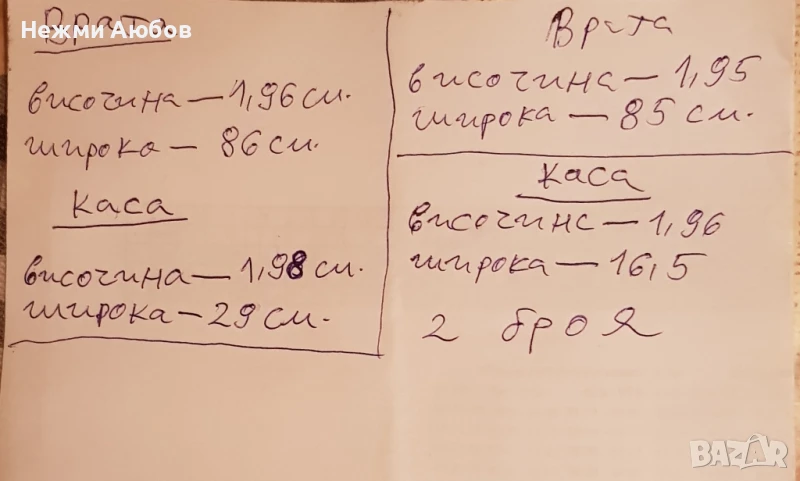 Нежми Любов
Врата
височина — 1,96 см.
широка — 86 см.
каса
височина — 1,98 см.
широка — 29 см.
Врата
височина — 1,95
широка — 85 см.
каса
височинс — 1,96
широка — 16,5
2 броя
BAZAR